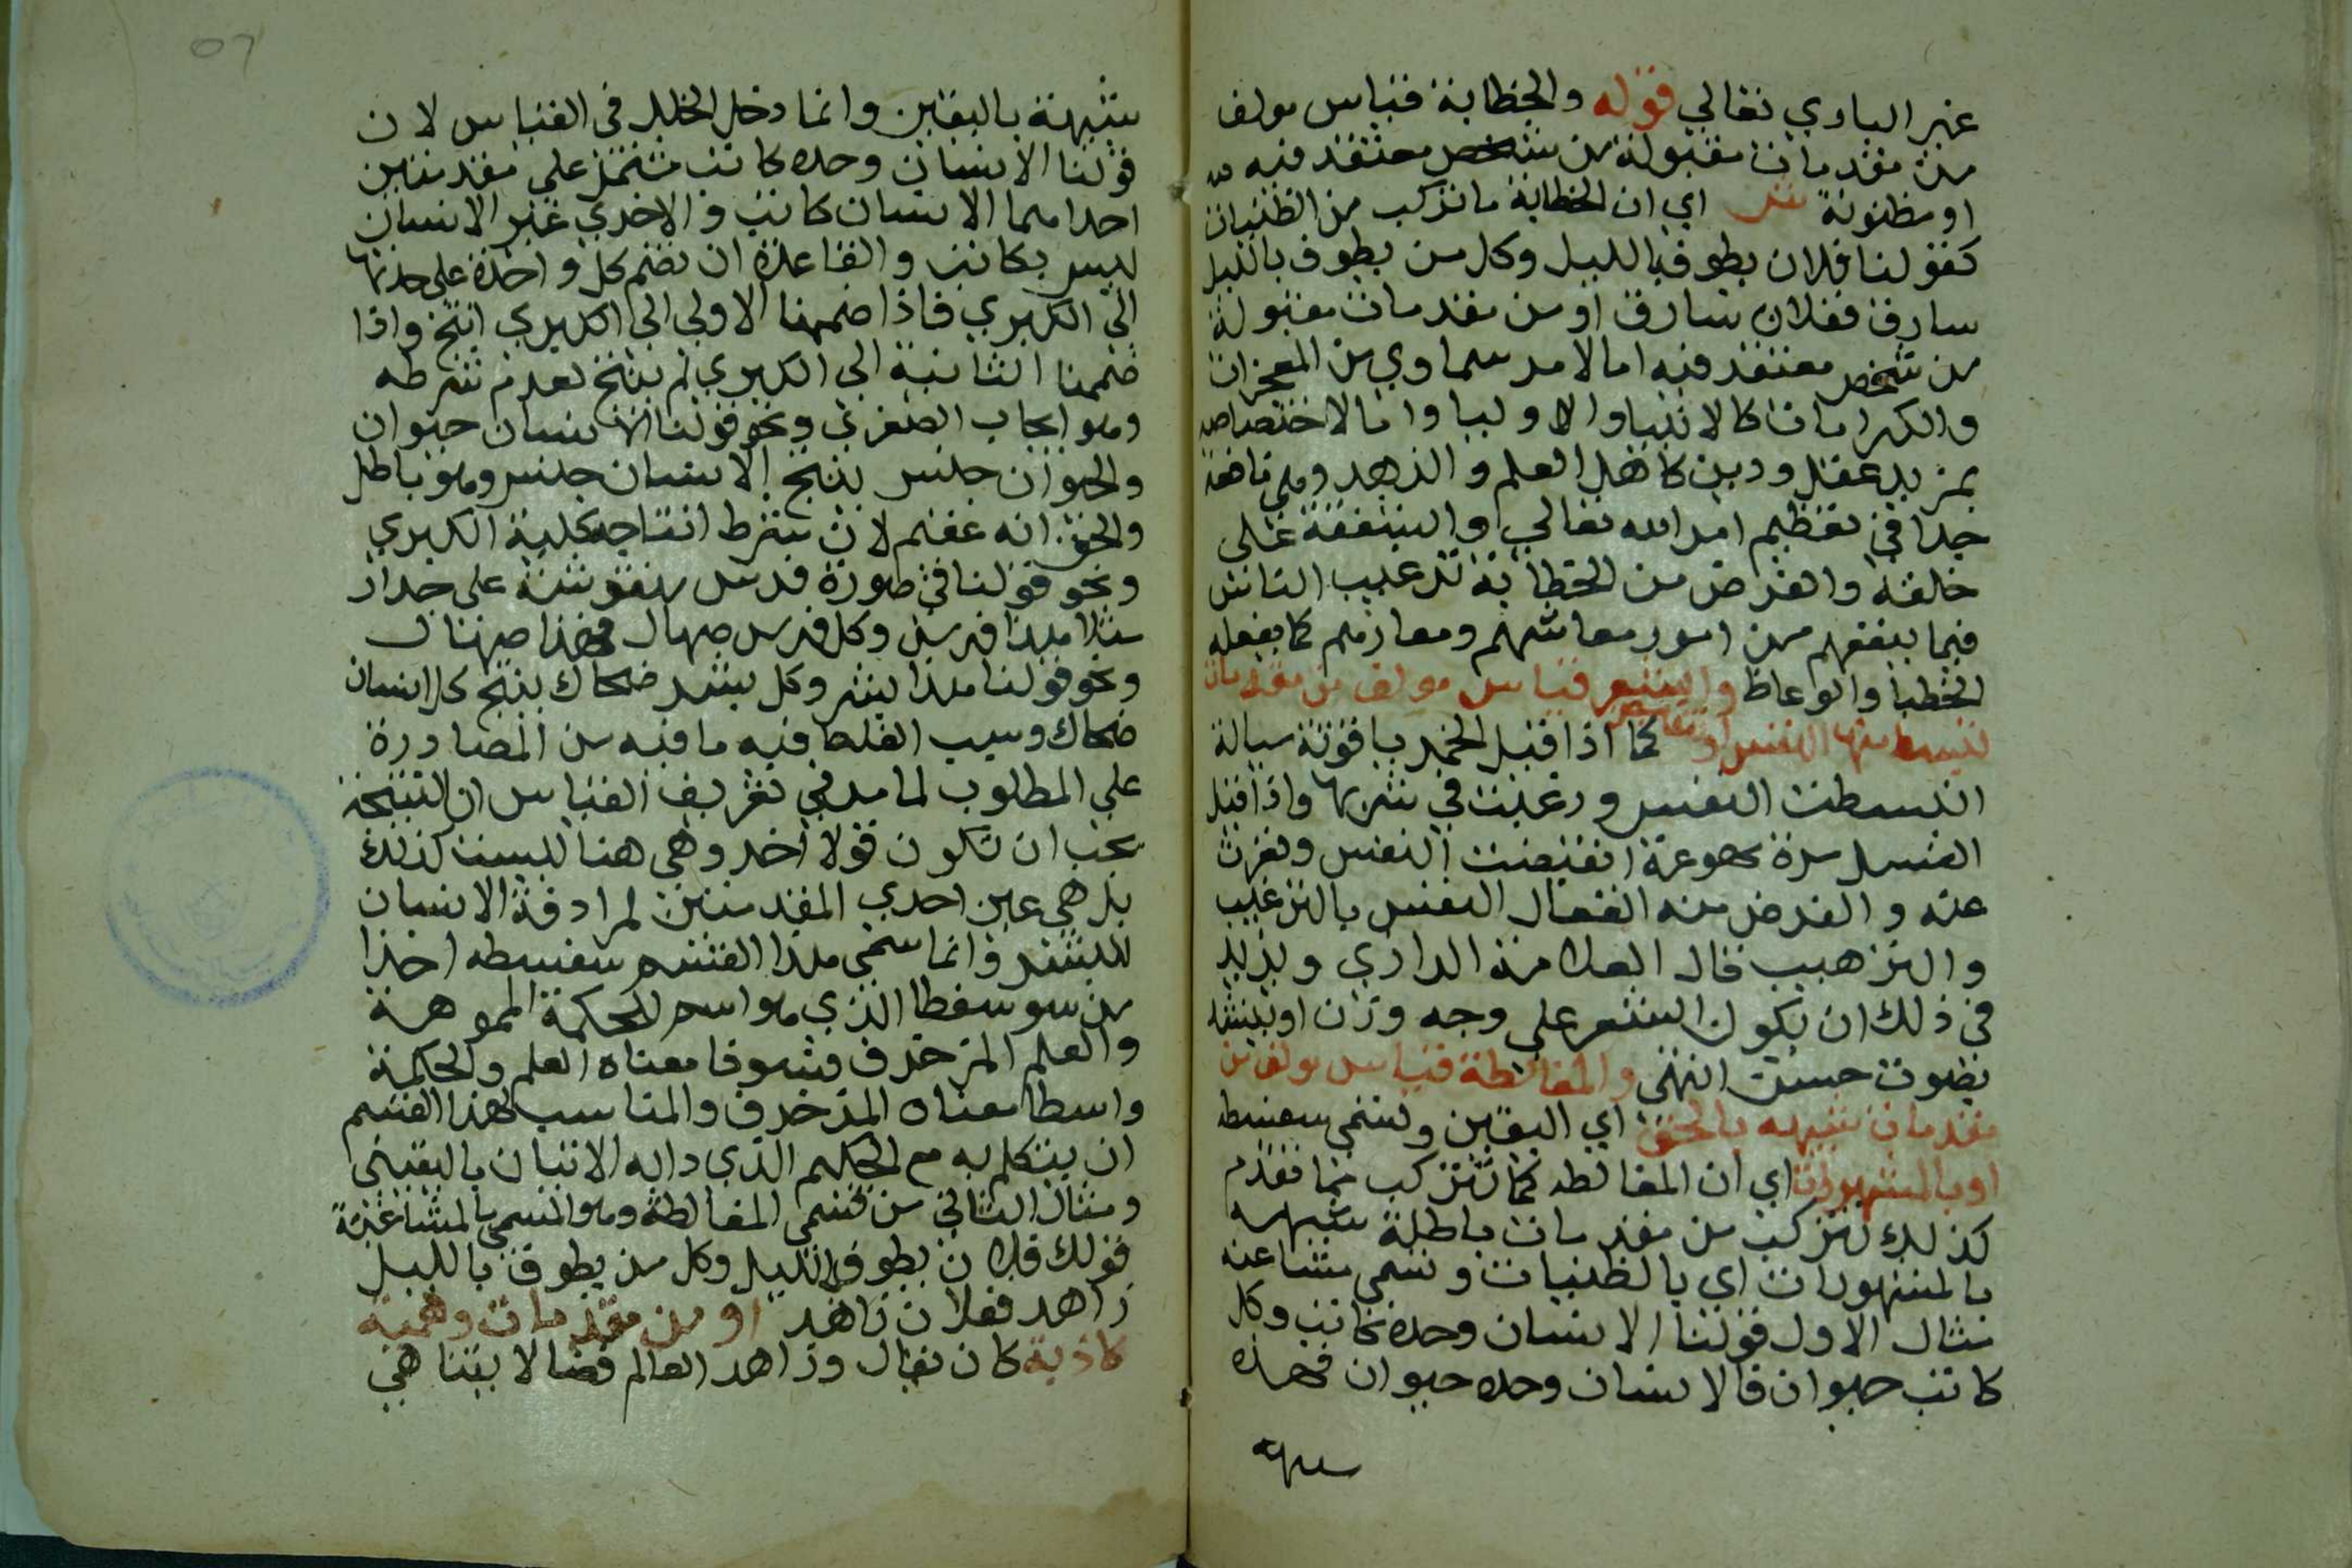 غير الباري تعالي قوله والخطابة قياس مولف
من مقدمات مقبولة من شخص معتقد فيه
او مظنونة ش اي ان الخطابة ما تركب من الظنيات
كقولنا فلان يطوف بالليل وكل من يطوف بالليل
سارق ففلان سارق او من مقدمات مقبولة
من شخص معتقد فيه اما لامر سماوي من المعجزات
والكرامات كالانبيا والاوليا واما لاختصاصه
بمزيد عقل ودين كاهل العلم والزهد وهي نافعة
جدا في تعظيم امر الله تعالي والشفقة علي
خلقه والغرض من الخطابة ترغيب الناس
فيما ينفعهم من امور معاشهم ومعادهم كما يفعله
الخطبا والوعاظ والشعر قياس مولف من مقدمات
تنبسط منها النفس او تنقبض كما اذا قيل الخمر ياقوتة سيالة
انبسطت النفس ورغبت في شربها واذا قيل
العسل مرة مهوعة انقبضت النفس ونفرت
عنه والغرض منه انفعال النفس بالترغيب
والترهيب قال العلامة الرازي ويزيد
في ذلك ان يكون الشعر علي وجه وزن او ينشد
بصوت حسن انتهي والمغالطة قياس مولف من
مقدمات شبيهه بالحق اي اليقين وتسمي سفسطه
او بالمشهورات اي ان المغالطه كما تتركب مما تقدم
كذلك تتركب من مقدمات باطلة شبيهه
بالمشهورات اي بالظنيات وتسمي مشاغبه
مثال الاول قولنا الانسان وحده كاتب وكل
كاتب حيوان فالانسان وحده حيوان فهذه
شبيهة
شبيهة باليقين وانما دخل الخلل في القياس لان
قولنا الانسان وحده كاتب مشتمل علي مقدمتين
احداهما الانسان كاتب والاخري غير الانسان
ليس بكاتب والقاعدة ان تضم كل واحدة علي حدتها
الي الكبري فاذا ضممنا الاولي الي الكبري انتج واذا
ضممنا الثانية الي الكبري لم ينتج لعدم شرطه
وهو ايجاب الصغري ونحو قولنا الانسان حيوان
والحيوان جنس ينتج الانسان جنس وهو باطل
والحق انه عقيم لان شرط انتاجه كلية الكبري
ونحو قولنا في صورة فرس منقوشة علي جدار
مثلا هذا فرس وكل فرس صهال فهذا صهال
ونحو قولنا هذا بشر وكل بشر ضحاك ينتج كل انسان
ضحاك وسبب الغلط فيه ما فيه من المصادرة
علي المطلوب لما مر في تعريف القياس ان النتيجة
يجب ان تكون قولا اخر وهي هنا ليست كذلك
بل هي عين احدي المقدمتين لمرادفة الانسان
للبشر وانما سمي هذا القسم سفسطه اخذا
من سوسفطا الذي هو اسم للحكمة المموهة
والعلم المزخرف فسوفا معناه العلم والحكمة
واسطا معناه المزخرف والمناسب لهذا القسم
ان يتكلم به مع الحكيم الذي دابه الاتيان باليقيني
ومثال الثاني من قسمي المغالطة وهو المسمي بالمشاغبة
قولك فلان يطوف بالليل وكل من يطوف بالليل
زاهد ففلان زاهد او من مقدمات وهمية
كاذبة كان يقال وراء هذا العالم فضا لا يتناهي